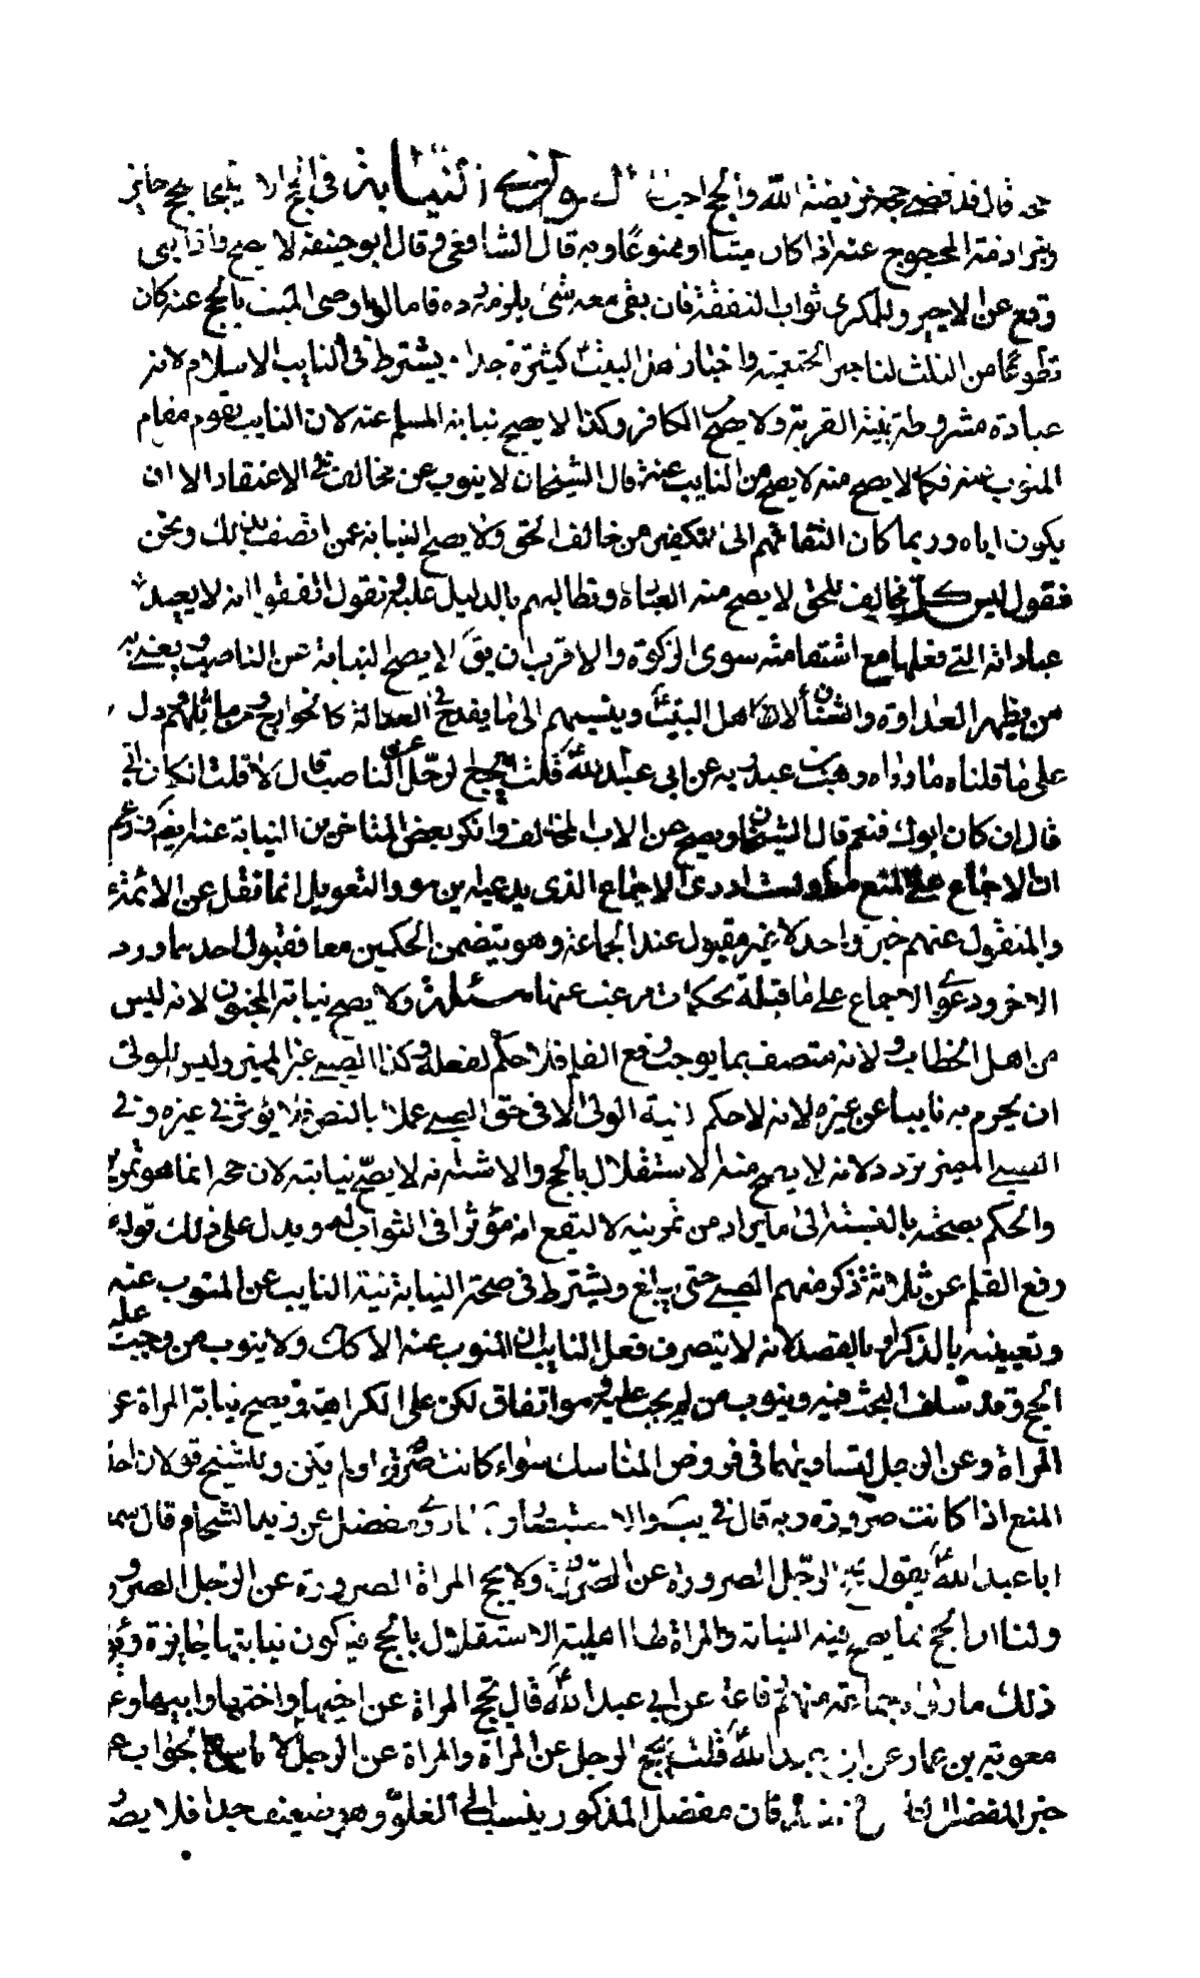 حجه قال قد قضى حجه فريضة الله والحج احب القول في النيابة في الحج
وتبرأ ذمة المحجوج عنه اذا كان ميتا او ممنوعا وبه قال الشافعي وقال ابو حنيفة لا يصح واذا اتى
وقع عن الاجير وللمكري ثواب النفقة فان بقى معه شئ يلزمه رده فاما لو اوصى الميت بالحج عنه كان
تطوعا من الثلث لنا خبر الخثعمية واخبار اهل البيت كثيرة جدا يشترط في النايب الاسلام لانه
عبادة مشروطة بنية القربة ولا يصح من الكافر وكذا لا يصح نيابة المسلم عنه لان النايب يقوم مقام
المنوب عنه فكما لا يصح منه لا يصح من النايب عنه قال الشيخان لا ينوب عن مخالف في الاعتقاد الا ان
يكون اباه وربما كان التفاتهم الى تكفير من خالف الحق ولا يصح النيابة عمن اتصف بذلك ونحن
فنقول ليس كل مخالف للحق لا يصح منه العبادة ونطالبهم بالدليل عليه ونقول اتفقوا انه لا يعيد
عباداته التي فعلها مع استقامته سوى الزكوة والاقرب ان يقال لا يصح النيابة عن الناصب ونعني به
من يظهر العداوة والشنآن لاهل البيت وينسبهم الى ما يقدح في العدالة كالخوارج ومن ماثلهم دل
على ما قلناه ما رواه وهب بن عبد ربه عن ابي عبد الله قلت ايحج الرجل عن الناصب قال لا قلت ان كان ابي
قال ان كان ابوك فنعم قال الشيخان ويصح عن الاب المخالف وانكر بعض المتاخرين النيابة عنه ايضا وزعم
ان الاجماع على المنع ولست ادري الاجماع الذي يدعيه من هو والتعويل انما نقل عن الائمة
والمنقول عنهم خبر واحد لا غير مقبول عند الجماعة وهو يتضمن الحكمين معا فقبول احدهما ورد
الاخر ودعوى الاجماع على ما قبله تحكمات يرغب عنها مسئلة ولا يصح نيابة المجنون لانه ليس
من اهل الخطاب ولانه متصف بما يوجب رفع القلم فلا حكم لفعله وكذا الصبي غير المميز وليس للولي
ان يحرم به نايبا عن غيره لانه لا حكم لنية الولي الا في حق الصبي عملا بالنص فلا يؤثر في غيره وفي
الصبي المميز تردد لانه لا يصح منه الاستقلال بالحج والاشبه انه لا يصح نيابته لان حجه انما هو تمرين
والحكم بصحته بالنسبة الى ما يراد من تمرينه لا لتقع مؤثرا في الثواب له ويدل على ذلك قوله
رفع القلم عن ثلاثة ذكر منهم الصبي حتى يبلغ ويشترط في صحة النيابة نية النايب عن المنوب عنه
وتعيينه بالذكر او بالقصد لانه لا يتصرف فعل النايب الى المنوب عنه الا كذلك ولا ينوب من وجب عليه
الحج وقد سلف البحث فيه وينوب من لم يجب عليه وهو اتفاق لكن على الكراهية ويصح نيابة المراة عن
المراة وعن الرجل لتساويهما في فروض المناسك سواء كانت صرورة او لم يكن وللشيخ قولان احدهما
المنع اذا كانت صرورة وبه قال في يب والاستبصار مفضل عن زيد الشحام قال سمعت
ابا عبد الله يقول يحج الرجل الصرورة عن الصرورة ولا يحج المراة الصرورة عن الرجل الصرورة
ولنا ان الحج مما يصح فيه النيابة والمراة لها اهلية الاستقلال بالحج فيكون نيابتها جايزة
ذلك ما رواه جماعة منهم رفاعة عن ابي عبد الله قال تحج المراة عن اخيها واختها وابيها
معوية بن عمار عن ابي عبد الله قلت يحج الرجل عن المراة والمراة عن الرجل لا باس والجواب عن
خبر المفضل فان مفضل المذكور ينسب الى الغلو وهو ضعيف جدا فلا